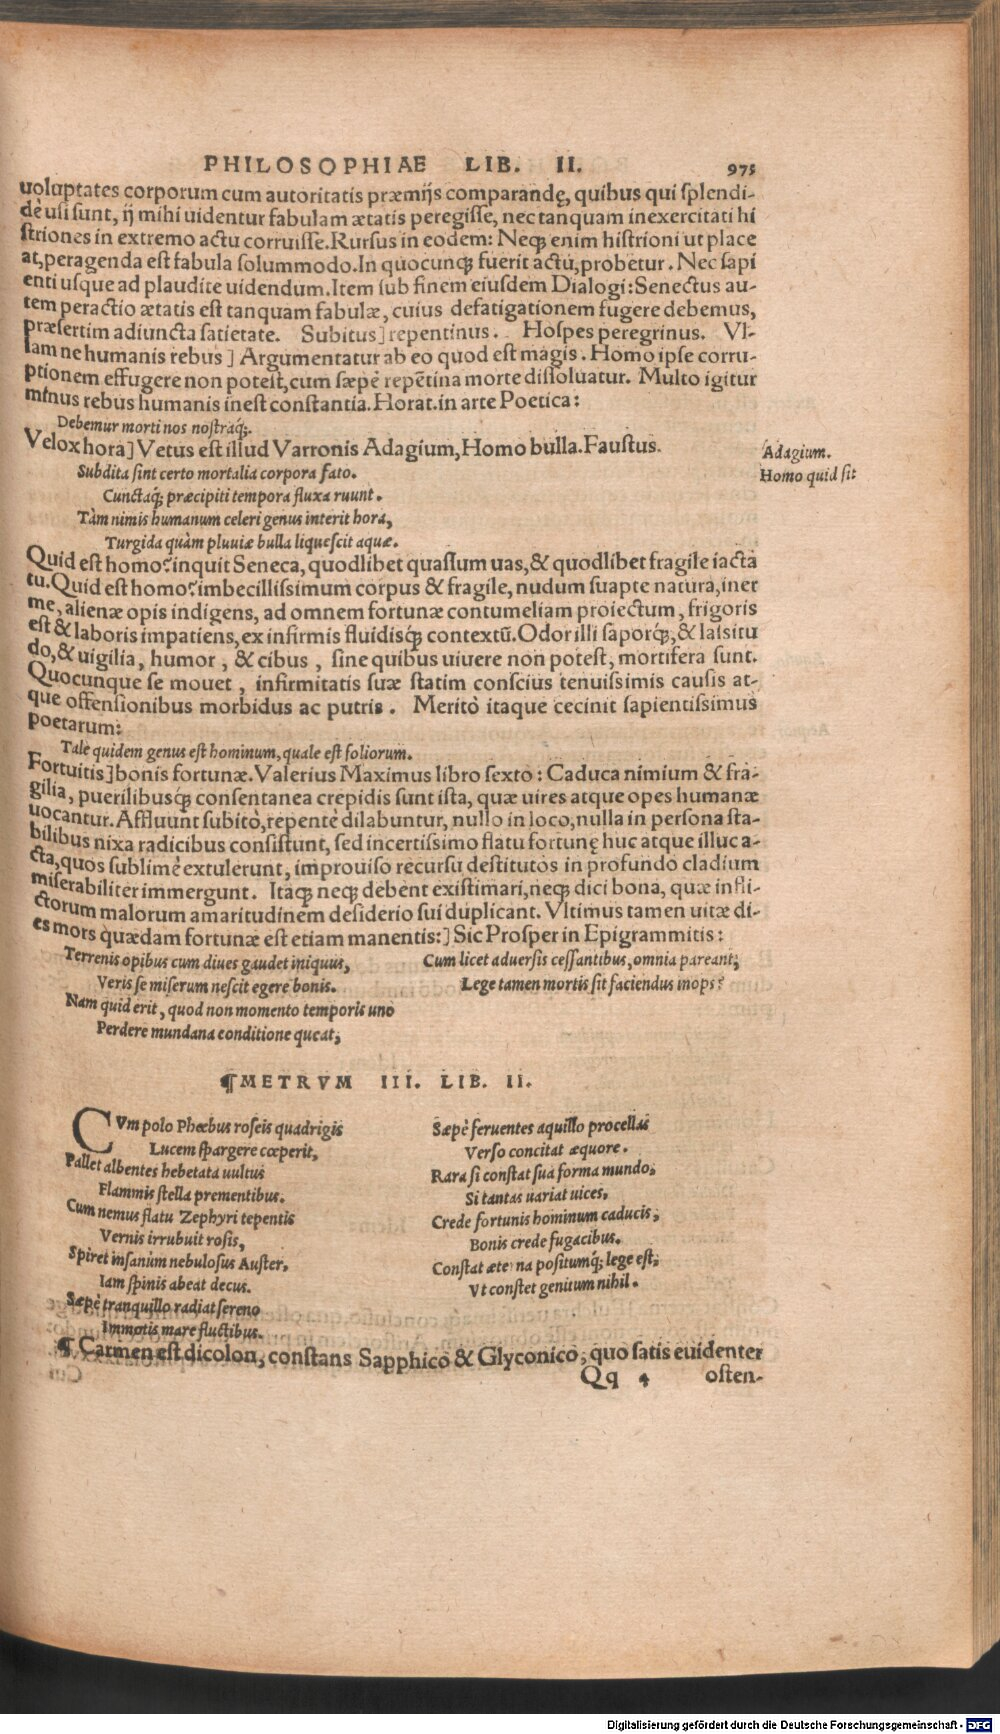 PHILOSOPHIAE LIB. II. 975
uoluptates corporum cum autoritatis præmijs comparandę, quibus qui splendi-
dè usi sunt, ij mihi uidentur fabulam ætatis peregisse, nec tanquam inexercitati hi
striones in extremo actu corruisse. Rursus in eodem: Neq; enim histrioni ut place
at, peragenda est fabula solummodo. In quocunq; fuerit actu, probetur. Nec sapi
enti usque ad plaudite uidendum. Item sub finem eiusdem Dialogi: Senectus au-
tem peractio ætatis est tanquam fabulæ, cuius defatigationem fugere debemus,
præsertim adiuncta satietate. Subitus] repentinus. Hospes peregrinus. Vl-
lam ne humanis rebus] Argumentatur ab eo quod est magis. Homo ipse corru-
ptionem effugere non potest, cum sæpè repētina morte dissoluatur. Multo igitur
minus rebus humanis inest constantia. Horat. in arte Poetica:
Debemur morti nos nostraq́;.
Velox hora] Vetus est illud Varronis Adagium, Homo bulla. Faustus.
Adagium.
Homo quid sit
Subdita sint certo mortalia corpora fato.
Cunctaq́; præcipiti tempora fluxa ruunt.
Tàm nimis humanum celeri genus interit hora,
Turgida quàm pluuiæ bulla liquescit aquæ.
Quid est homo? inquit Seneca, quodlibet quassum uas, & quodlibet fragile iacta
tu. Quid est homo? imbecillissimum corpus & fragile, nudum suapte natura, iner
me, alienæ opis indigens, ad omnem fortunæ contumeliam proiectum, frigoris
est & laboris impatiens, ex infirmis fluidisq́; contextū. Odor illi saporq́;, & lassitu
do, & uigilia, humor, & cibus, sine quibus uiuere non potest, mortifera sunt.
Quocunque se mouet, infirmitatis suæ statim conscius tenuissimis causis at-
que offensionibus morbidus ac putris. Meritò itaque cecinit sapientissimus
poetarum:
Tale quidem genus est hominum, quale est foliorum.
Fortuitis] bonis fortunæ. Valerius Maximus libro sexto: Caduca nimium & fra-
gilia, puerilibusq́; consentanea crepidis sunt ista, quæ uires atque opes humanæ
uocantur. Affluunt subitò, repentè dilabuntur, nullo in loco, nulla in persona sta-
bilibus nixa radicibus consistunt, sed incertissimo flatu fortunę huc atque illuc a-
cta, quos sublimè extulerunt, improuiso recursu destitutos in profundo cladium
miserabiliter immergunt. Itaq; neq; debent existimari, neq; dici bona, quæ infli-
ctorum malorum amaritudinem desiderio sui duplicant. Vltimus tamen uitæ di-
es mors quædam fortunæ est etiam manentis:] Sic Prosper in Epigrammitis:
Terrenis opibus cum diues gaudet iniquus,
Veris se miserum nescit egere bonis.
Nam quid erit, quod non momento temporis uno
Perdere mundana conditione queat;
Cum licet aduersis cessantibus, omnia pareant;
Lege tamen mortis sit faciendus inops?
¶METRVM III. LIB. II.
CVm polo Phœbus roseis quadrigis
Lucem spargere cœperit,
Pallet albentes hebetata uultus
Flammis stella prementibus.
Cum nemus flatu Zephyri tepentis
Vernis irrubuit rosis,
Spiret insanùm nebulosus Auster,
Iam spinis abeat decus.
Sæpè tranquillo radiat sereno
Immotis mare fluctibus.
Sæpè feruentes aquillo procellas
Verso concitat æquore.
Rara si constat sua forma mundo,
Si tantas uariat uices,
Crede fortunis hominum caducis,
Bonis crede fugacibus.
Constat æterna positumq́; lege est,
Vt constet genitum nihil.
¶ Carmen est dicolon, constans Sapphico & Glyconico, quo satis euidenter
Qq 4 osten-
Digitalisierung gefördert durch die Deutsche Forschungsgemeinschaft - DFG